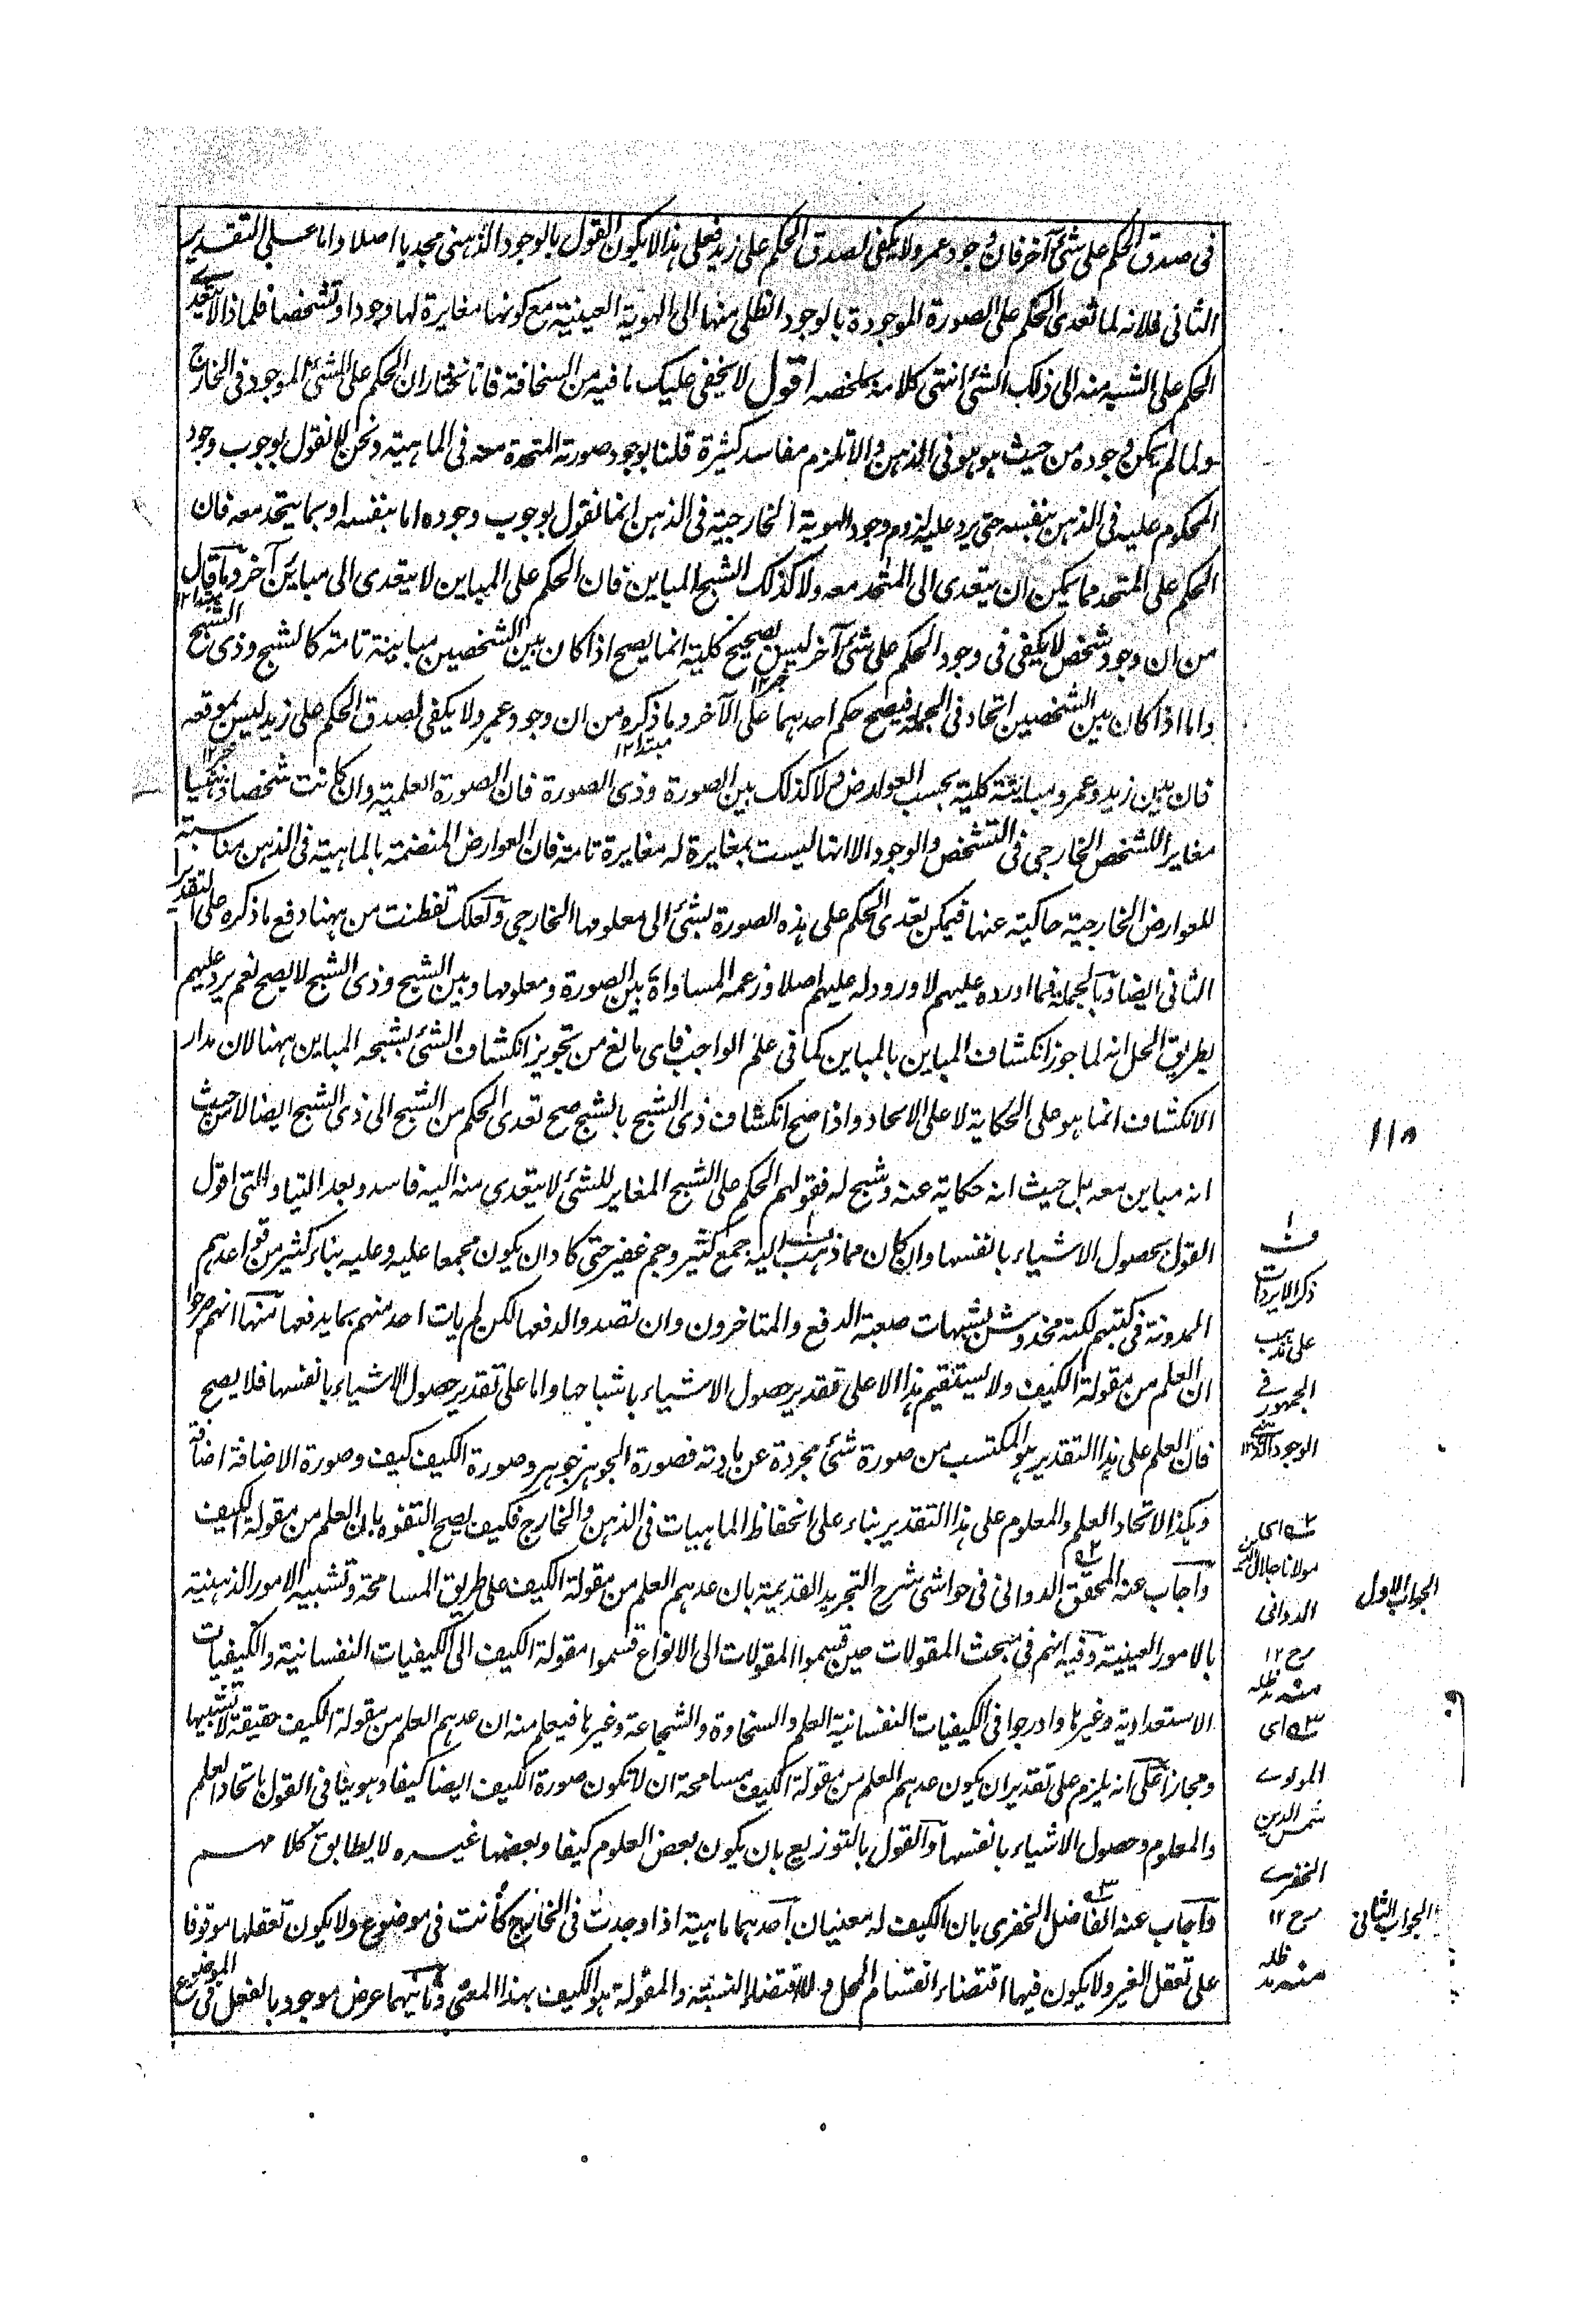 فى صدق الحكم على شئ آخر فان وجود عمرو لا يكفى لصدق الحكم على زيد فعلى هذا لا يكون القول بالوجود الذهنى مجديا اصلا واما على التقدير
الثانى فلانه لما تعدى الحكم على الصورة الموجودة بالوجود الظلى منها الى الهوية العينية مع كونها مغايرة لها وجودا وتشخصا فلماذا لا يتعدى
الحكم على الشبح منه الى ذلك الشئ انتهى كلامه بملخصه اقول لا يخفى عليك ما فيه من السخافة فانا نختار ان الحكم على الشئ الموجود فى الخارج
ولما لم يكن وجوده من حيث هو هو فى الذهن والا تلزم مفاسد كثيرة قلنا بوجود صورته المتحدة معه فى الماهية ونحن لا نقول بوجوب وجود
المحكوم عليه فى الذهن بنفسه حتى يرد عليه لزوم وجود الهوية الخارجية فى الذهن انما نقول بوجوب وجوده اما بنفسه او بما يتحد معه فان
الحكم على المتحد مما يمكن ان يتعدى الى المتحد معه ولا كذلك الشبح المباين فان الحكم على المباين لا يتعدى الى مباين آخر وما قال
من ان وجود شخص لا يكفى فى وجود الحكم على شئ آخر ليس بصحيح كلية انما يصح اذا كان بين الشخصين مباينة تامة كالشبح وذى الشبح
واما اذا كان بين الشخصين اتحاد فى الجملة فيصح حكم احدهما على الآخر وما ذكره من ان وجود عمرو لا يكفى لصدق الحكم على زيد ليس بموقعه
فان بين زيد وعمرو مباينة كلية بحسب العوارض ولا كذلك بين الصورة وذى الصورة فان الصورة العلمية وان كانت شخصا ذهنيا
مغايرا للشخص الخارجى فى التشخص والوجود الا انها ليست بمغايرة له مغايرة تامة فان العوارض المنضمة بالماهية فى الذهن مناسبة
للعوارض الخارجية حاكية عنها فيمكن تعدى الحكم على هذه الصورة بشئ الى معلومها الخارجى ولعلك تفطنت من ههنا دفع ما ذكره على التقدير
الثانى ايضا وبالجملة فما اورده عليهم لا ورود له عليهم اصلا وزعمه المساواة بين الصورة ومعلومها وبين الشبح وذى الشبح لا يصح نعم يرد عليهم
بطريق الحل انه لما جوز انكشاف المباين بالمباين كما فى علم الواجب فاى مانع من تجويز انكشاف الشئ بشبحه المباين ههنا لان مدار
الانكشاف انما هو على الحكاية لا على الاتحاد واذا صح انكشاف ذى الشبح بالشبح صح تعدى الحكم من الشبح الى ذى الشبح ايضا لا من حيث
انه مباين معه بل حيث انه حكاية عنه وشبح له فقولهم الحكم على الشبح المغاير للشئ لا يتعدى منه اليه فاسد وبعد اللتيا والتى اقول
القول بحصول الاشياء بانفسها وان كان مما ذهب اليه جمع كثير وجم غفير حتى كاد ان يكون مجمعا عليه وعليه بناء كثير من قواعدهم
المدونة فى كتبهم لكنه مخدوش بشبهات صعبة الدفع والمتاخرون وان تصدوا لدفعها لكن لم يات احد منهم بما يدفعها منها انهم صرحوا
ان العلم من مقولة الكيف ولا يستقيم هذا الا على تقدير حصول الاشياء باشباحها واما على تقدير حصول الاشياء بانفسها فلا يصح
فان العلم على هذا التقدير هو المكتسب من صورة شئ مجردة عن مادته فصورة الجوهر جوهر وصورة الكيف كيف وصورة الاضافة اضافة
وهكذا لاتحاد العلم والمعلوم على هذا التقدير بناء على انحفاظ الماهيات فى الذهن والخارج فكيف يصح التفوه بان العلم من مقولة الكيف
واجاب عنه المحقق الدوانى فى حواشى شرح التجريد القديمة بان عدهم العلم من مقولة الكيف على طريق المسامحة وتشبيه الامور الذهنية
بالامور العينية وفيه انهم فى مبحث المقولات حين قسموا المقولات الى الانواع قسموا مقولة الكيف الى الكيفيات النفسانية والكيفيات
الاستعدادية وغيرها وادرجوا فى الكيفيات النفسانية العلم والسخاوة والشجاعة وغيرها فيعلم منه ان عدهم العلم من مقولة الكيف حقيقة لا تشبيها
ومجازا على انه يلزم على تقدير ان يكون عدهم العلم من مقولة الكيف مسامحة ان لا تكون صورة الكيف ايضا كيفا وهو ينافى القول باتحاد العلم
والمعلوم وحصول الاشياء بانفسها والقول بالتوزيع بان يكون بعض العلوم كيفا وبعضها غيره لا يطابق كلامهم
واجاب عنه الفاضل الخفرى بان الكيف له معنيان احدهما ماهية اذا وجدت فى الخارج كانت فى موضوع ولا يكون تعقلها موقوفا
على تعقل الغير ولا يكون فيها اقتضاء انقسام المحل ولا اقتضاء النسبة والمقولة هو الكيف بهذا المعنى وثانيهما عرض موجود بالفعل فى الموضوع
١١٨
ف ١
ذكر الايرادات
على مذهب
الجمهور فى
الوجود الذهنى ١٢
٢ اى
مولانا جلال الدين
الدوانى
رح ١٢
منه مد ظله
٣ اى
المولوى
شمس الدين
الخفرى
رح ١٢
منه مد ظله
الجواب الاول
الجواب الثانى